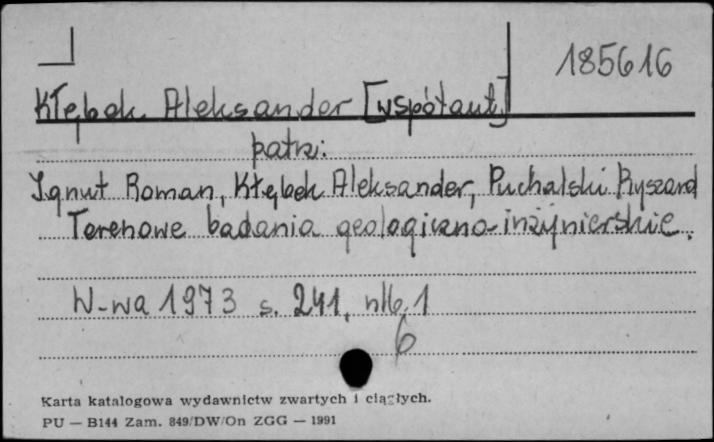 185616
Kłębek Aleksander [współaut.]
patrz:
Ignut Roman, Kłębek Aleksander, Puchalski Ryszard
Terenowe badania geologiczno-inżynierskie.
W-wa 1973 s. 241, nlb. 1
6
Karta katalogowa wydawnictw zwartych i ciągłych.
PU — B144 Zam. 849/DW/On ZGG — 1991